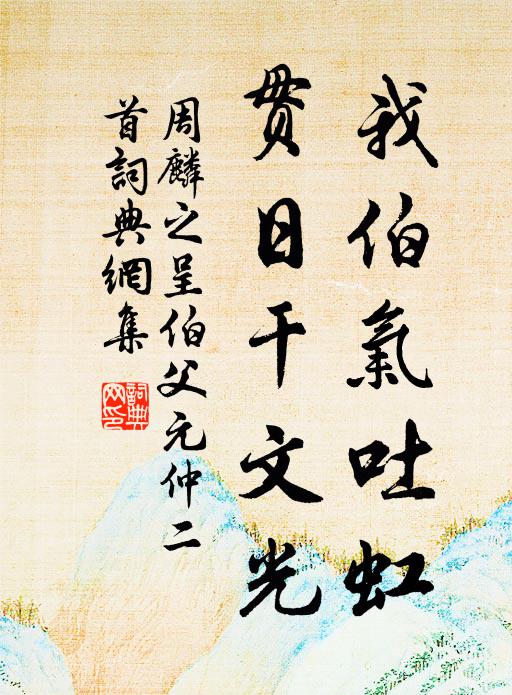 我伯氣吐虹
貫日干文光
周麟之呈伯父元仲二
首詞典網集
詞典網印